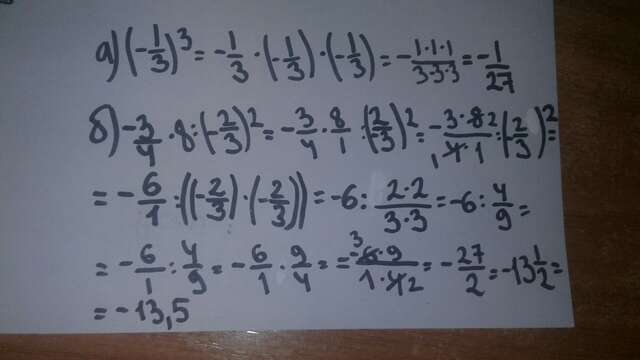 а) (-1/3)³ = -1/3 · (-1/3) · (-1/3) = -1·1·1/3·3·3 = -1/27
б) -3/4 · 8 : (-2/3)² = -3/4 · 8/1 : (2/3)² = -3·8 2/1 4·1 : (-2/3)² =
= -6/1 : ((-2/3) · (-2/3)) = -6 : 2·2/3·3 = -6 : 4/9 =
= -6/1 : 4/9 = -6/1 · 9/4 = -3 6·9/1·4 2 = -27/2 = -13 1/2 =
= -13,5